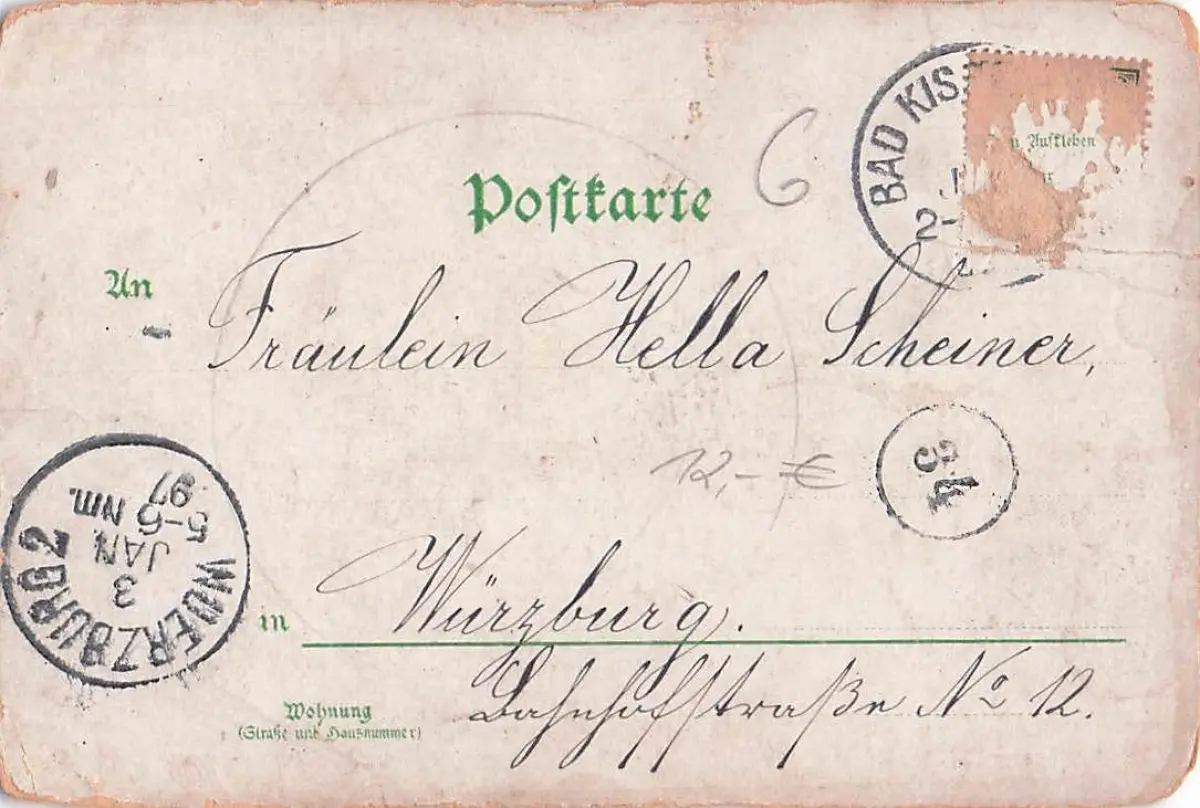 BAD KIS
2-
Aufkleben
6
Postkarte
An
Fräulein Hella Scheiner,
34
12,- €
WUERZBURG 2
3
JAN.
5-6 Nm.
97
in Würzburg.
Bahnhofstraße No 12.
Wohnung
(Straße und Hausnummer)